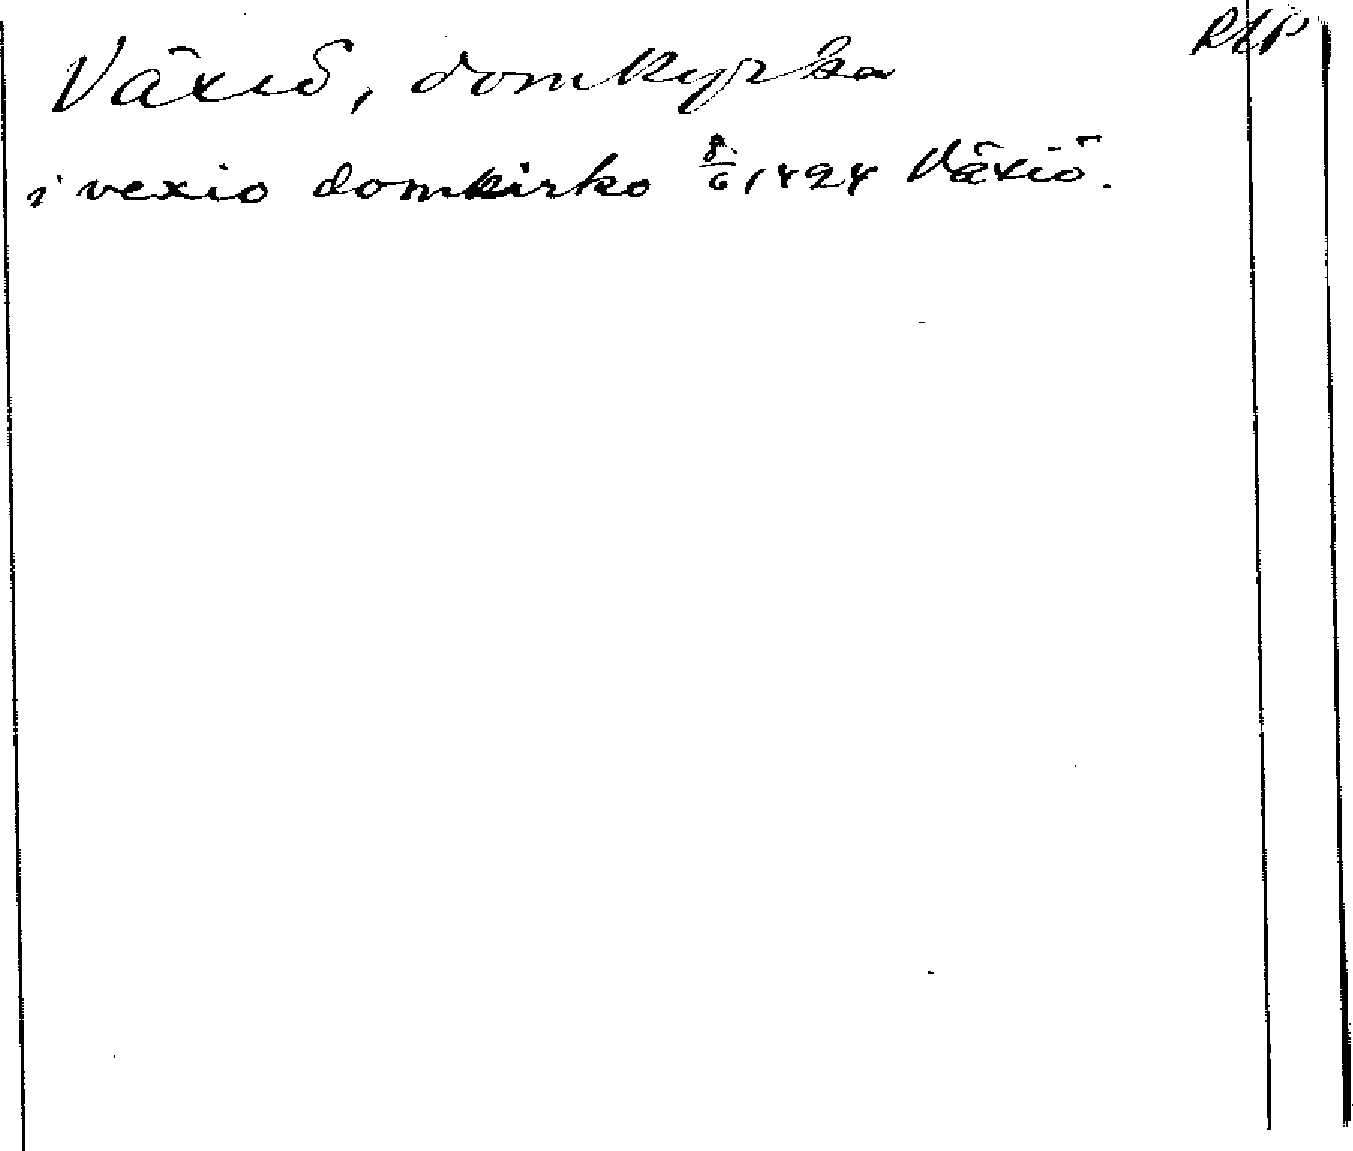 Växiö, domkyrka
i vexio domkirko 8/6 1424 Växiö.